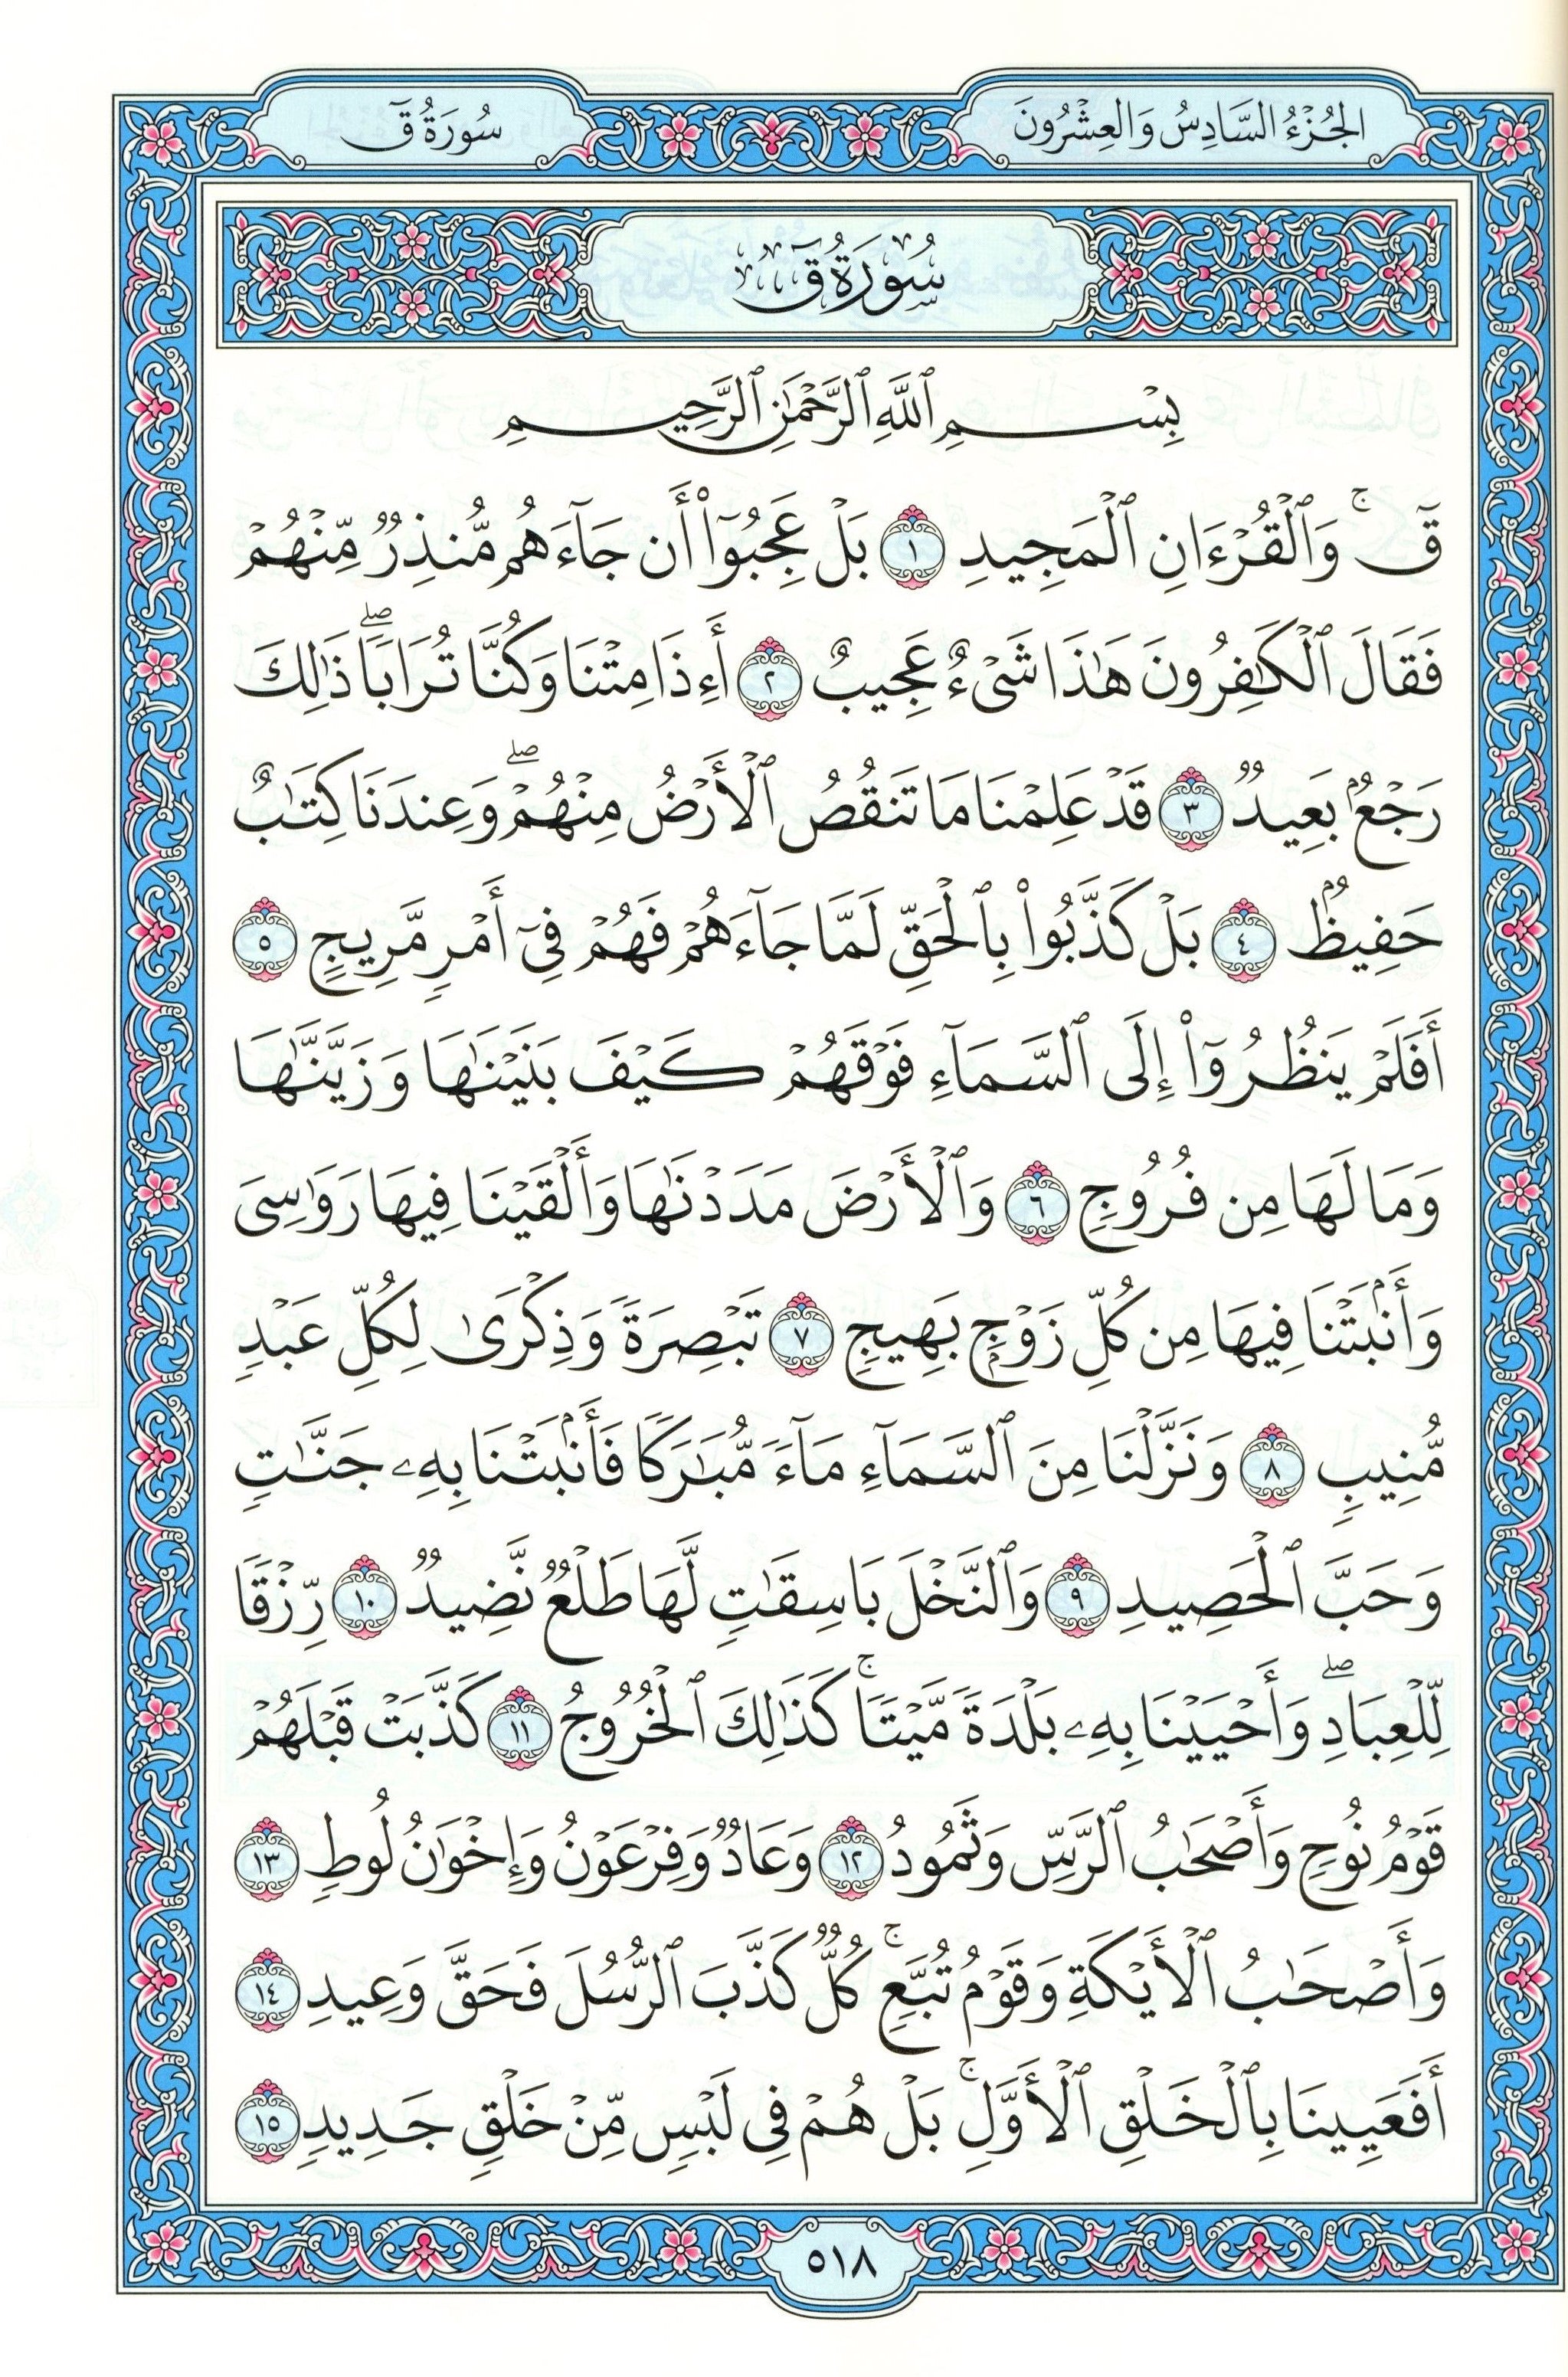 الجُزْءُ السَّادِسُ وَالعِشْرُونَ
سُورَةُ قٓ
سُورَةُ قٓ
بِسْمِ ٱللَّهِ ٱلرَّحْمَٰنِ ٱلرَّحِيمِ
قٓ ۚ وَٱلْقُرْءَانِ ٱلْمَجِيدِ ١ بَلْ عَجِبُوٓا۟ أَن جَآءَهُم مُّنذِرٌ مِّنْهُمْ
فَقَالَ ٱلْكَٰفِرُونَ هَٰذَا شَىْءٌ عَجِيبٌ ٢ أَءِذَا مِتْنَا وَكُنَّا تُرَابًا ۖ ذَٰلِكَ
رَجْعٌۢ بَعِيدٌ ٣ قَدْ عَلِمْنَا مَا تَنقُصُ ٱلْأَرْضُ مِنْهُمْ ۖ وَعِندَنَا كِتَٰبٌ
حَفِيظٌۢ ٤ بَلْ كَذَّبُوا۟ بِٱلْحَقِّ لَمَّا جَآءَهُمْ فَهُمْ فِىٓ أَمْرٍ مَّرِيجٍ ٥
أَفَلَمْ يَنظُرُوٓا۟ إِلَى ٱلسَّمَآءِ فَوْقَهُمْ كَيْفَ بَنَيْنَٰهَا وَزَيَّنَّٰهَا
وَمَا لَهَا مِن فُرُوجٍ ٦ وَٱلْأَرْضَ مَدَدْنَٰهَا وَأَلْقَيْنَا فِيهَا رَوَٰسِىَ
وَأَنۢبَتْنَا فِيهَا مِن كُلِّ زَوْجٍۭ بَهِيجٍ ٧ تَبْصِرَةً وَذِكْرَىٰ لِكُلِّ عَبْدٍ
مُّنِيبٍ ٨ وَنَزَّلْنَا مِنَ ٱلسَّمَآءِ مَآءً مُّبَٰرَكًا فَأَنۢبَتْنَا بِهِۦ جَنَّٰتٍ
وَحَبَّ ٱلْحَصِيدِ ٩ وَٱلنَّخْلَ بَاسِقَٰتٍ لَّهَا طَلْعٌ نَّضِيدٌ ١٠ رِّزْقًا
لِّلْعِبَادِ ۖ وَأَحْيَيْنَا بِهِۦ بَلْدَةً مَّيْتًا ۚ كَذَٰلِكَ ٱلْخُرُوجُ ١١ كَذَّبَتْ قَبْلَهُمْ
قَوْمُ نُوحٍ وَأَصْحَٰبُ ٱلرَّسِّ وَثَمُودُ ١٢ وَعَادٌ وَفِرْعَوْنُ وَإِخْوَٰنُ لُوطٍ ١٣
وَأَصْحَٰبُ ٱلْأَيْكَةِ وَقَوْمُ تُبَّعٍ ۚ كُلٌّ كَذَّبَ ٱلرُّسُلَ فَحَقَّ وَعِيدِ ١٤
أَفَعَيِينَا بِٱلْخَلْقِ ٱلْأَوَّلِ ۚ بَلْ هُمْ فِى لَبْسٍ مِّنْ خَلْقٍ جَدِيدٍ ١٥
٥١٨